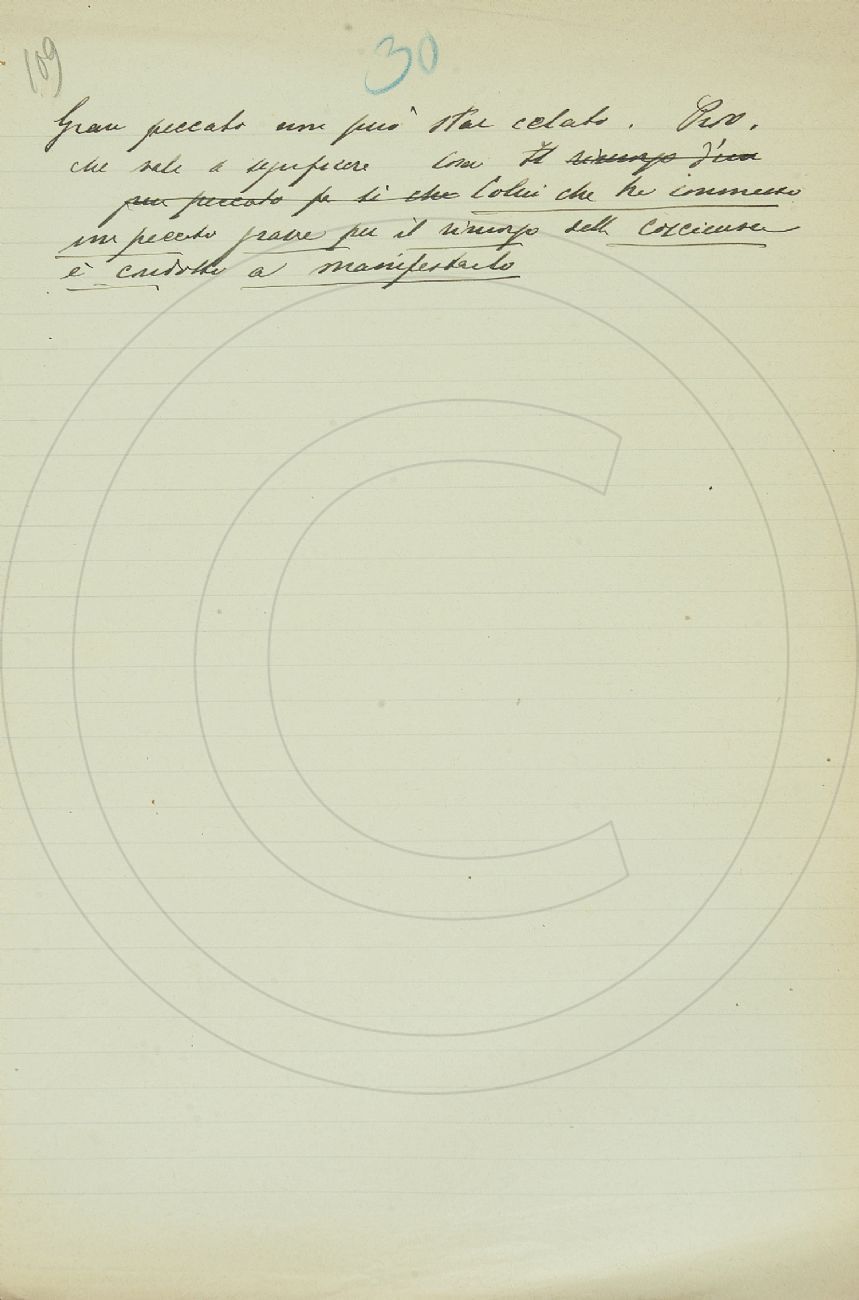 109
30
Gran peccato non può star celato. Prov.
che vale a significare Il rimorso d'un
gran peccato fa sì che Colui che ha commesso
un peccato grave per il rimorso della coscienza
è condotto a manifestarlo